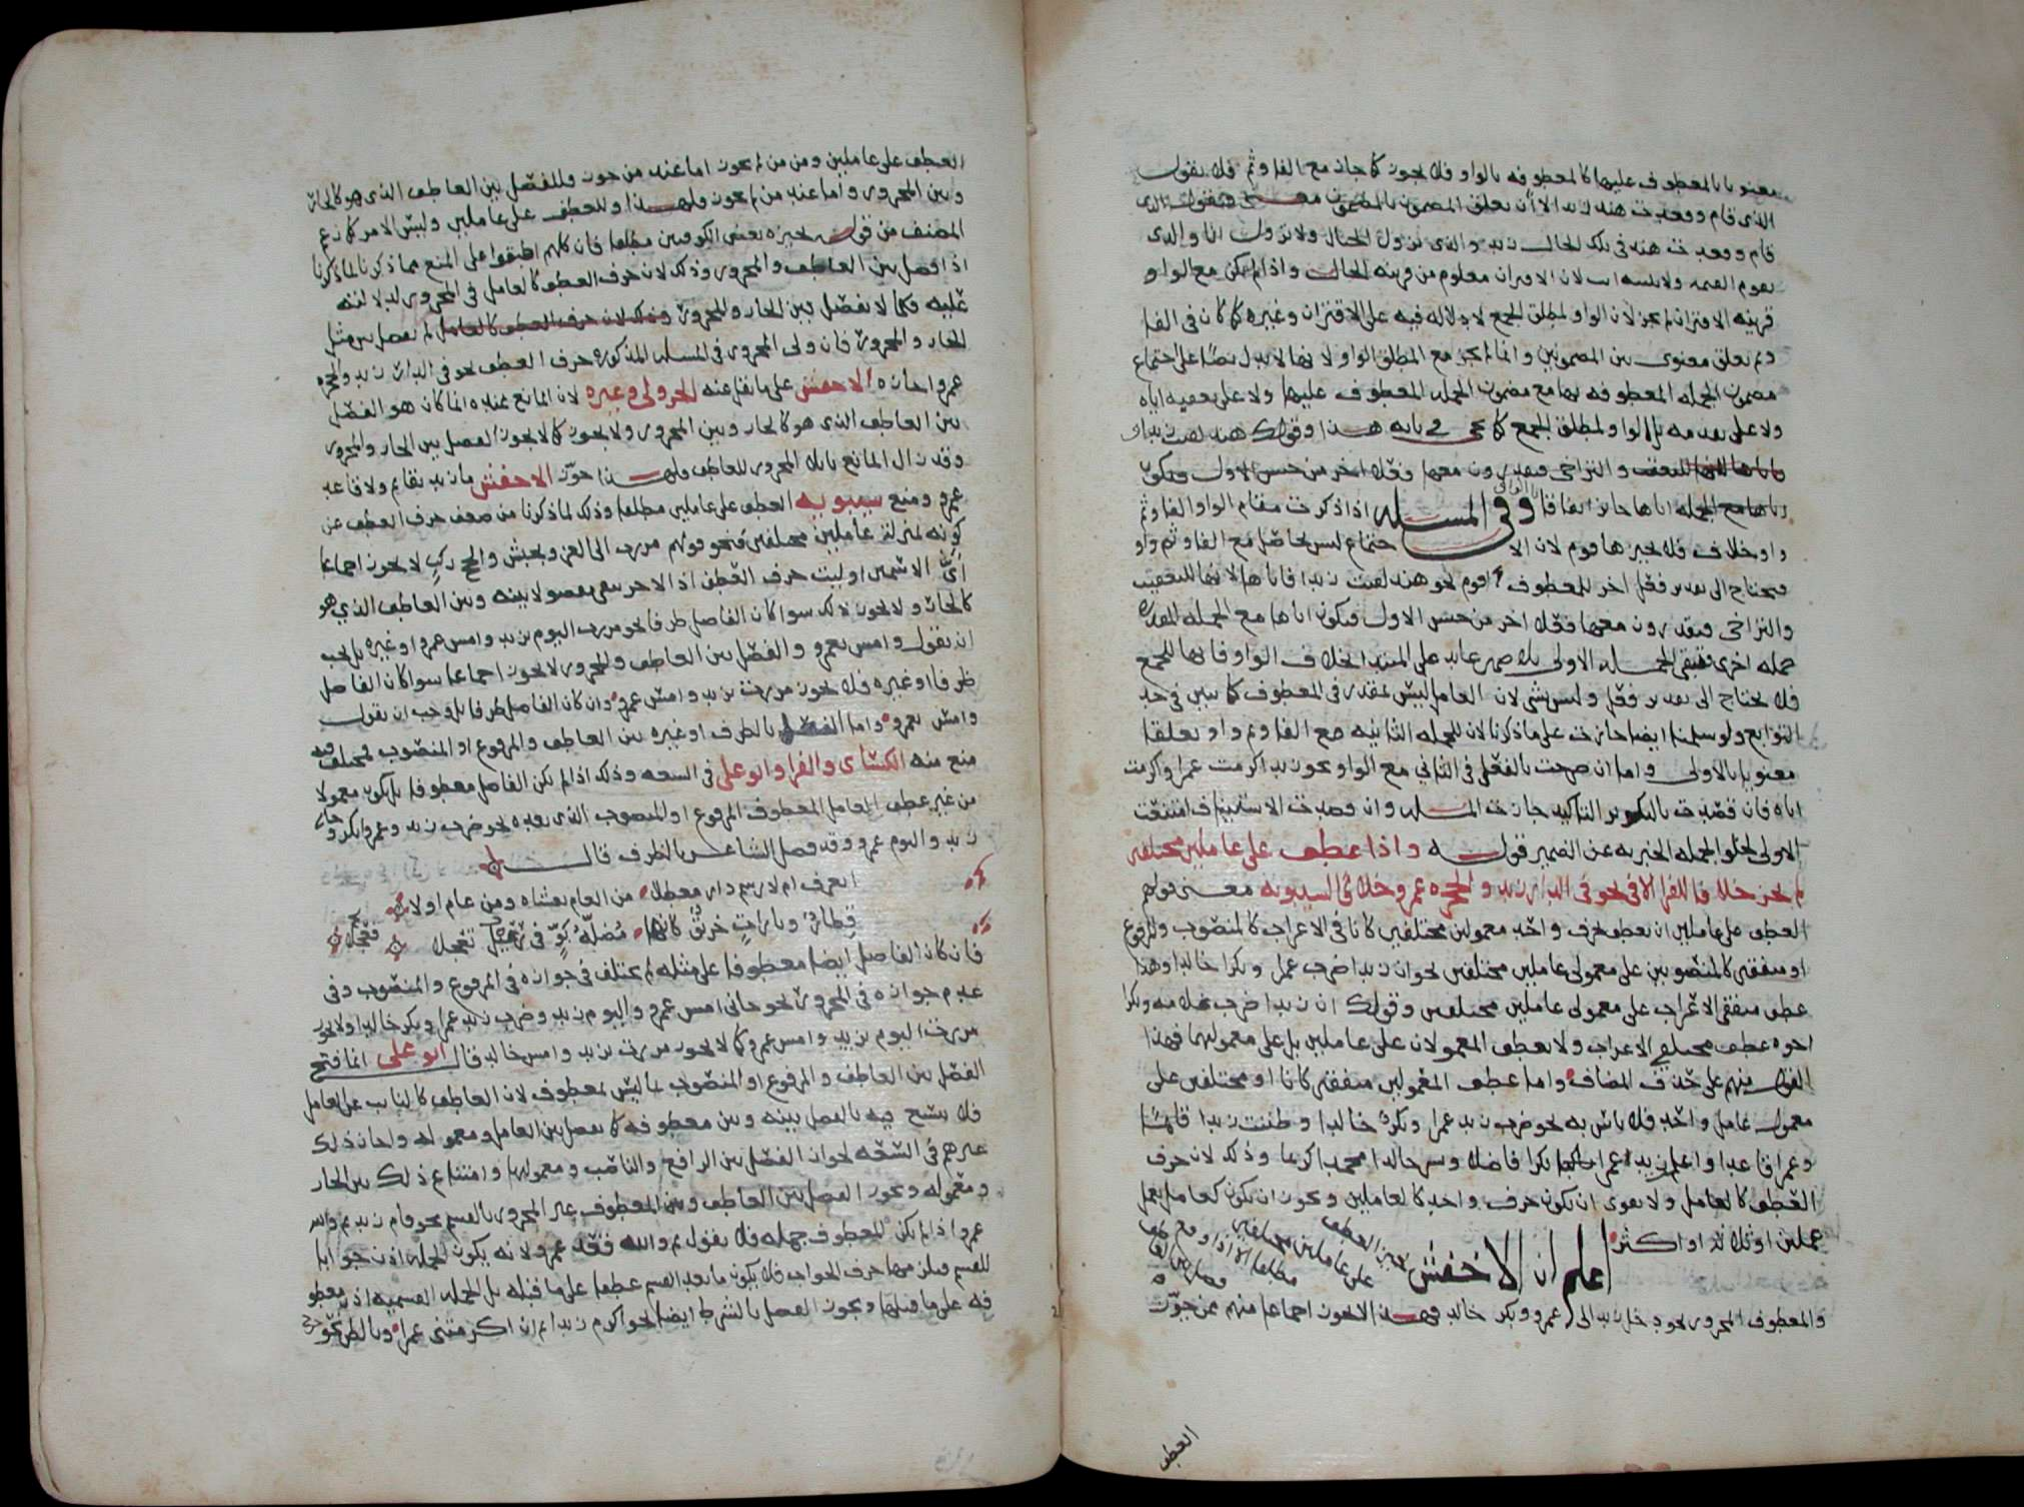 معنويا بالمعطوف عليها كالمعطوفه بالواو فلا يجوز كما جاز مع الفا وثم فلا تقول
الذى قام وقعدت هند زيد الا ان تعلق المضمون بالمضمون
قام وقعدت هند فى تلك الحال زيد والذى تزول الجبال ولا تزول انا والذى
يقوم القيمه ولا ينتبه انت لان الاقتران معلوم من قرينه الحال واذا لم يكن مع الواو
قرينه الاقتران لم يجز لان الواو لمطلق الجمع لا دلاله فيه على الاقتران وغيره كما كان فى الفا
وثم تعلق معنوى بين المضمونين وانما لم يجز مع المطلق الواو لانها لا تدل نصا على اجتماع
مضمون الجمله المعطوفه بها مع مضمون الجمله المعطوف عليها ولا على تعقيبه اياه
ولا على تقدمه بل الواو لمطلق الجمع كما يجى فى بابه هذا وقولك هند لقيت زيدا و
والتراخى فيقدرون معها فعلا اخر من جنس الاول فيكون
اياها مع الجمله اياها جائز اتفاقا وفى المسله اذا ذكرت مقام الواو الفا وثم
واو خلاف فلا يجيزها قوم لان الاجتماع ليس بحاصل مع الفا وثم واو
فيحتاج الى تقدير فعل اخر للمعطوف قوم نحو هند لقيت زيدا فاياها لانها للتعقيب
والتراخى فيقدرون معها فعلا اخر من جنس الاول فيكون اياها مع الجمله المقدره
جمله اخرى فتبقى الجمله الاولى بلا ضمير عايد على المبتدا بخلاف الواو فانها للجمع
فلا يحتاج الى تقدير فعل وليس بشى لان العامل ليس بمقدر فى المعطوف كما يتبين فى حد
التوابع ولو سلمنا ايضا جازت على ما ذكرنا لان للجمله الثانيه مع الفا وثم واو تعلقا
معنويا بالاولى واما ان صرحت بالفعل فى الثانى مع الواو نحو زيد اكرمت عمرا واكرمت
اياه فان قصدت بالتكرير التاكيد جازت المسله وان قصدت الاستيناف امتنعت
الاولى لخلو الجمله الخبريه عن الضمير قوله واذا عطف على عاملين مختلفين
لم يجز خلافا للفرا الا فى نحو فى الدار زيد والحجره عمرو خلافا لسيبويه معنى قولهم
العطف على عاملين ان تعطف بحرف واحد معمولين مختلفين كانا فى الاعراب كالمنصوب والمرفوع
او متفقين كالمنصوبين على معمولى عاملين مختلفين نحو ان زيدا ضرب عمرا وبكرا خالدا وهذا
عطف متفقى الاعراب على معمولى عاملين مختلفين وقولك ان زيدا ضرب غلامه وبكرا
اخوه عطف مختلفى الاعراب ولا يعطف المعمولان على عاملين بل على معموليهما فهذا
القول منهم على حذف المضاف واما عطف المعمولين متفقين كانا او مختلفين على
معمول عامل واحد فلا باس به نحو ضرب زيد عمرا وبكر خالدا وظننت زيدا قائما
وعمرا قاعدا واعلم زيد عمرا بكرا فاضلا وبشر خالدا محمدا كريما وذلك لان حرف
العطف كالعامل ولا يقوى ان يكون حرف واحد كالعاملين ويجوز ان يكون كعامل يعمل
عملين او ثلاثه او اكثر اعلم ان الاخفش يجيز العطف على عاملين مختلفين مطلقا الا اذا وقع فصل بين العاطف
والمعطوف المجرور نحو دخل زيد الى عمرو وبكر خالد فهذا لا يجوز اجماعا منهم ممن جوز
العطف
العطف على عاملين ومن من لم يجوز اما عند من جوز فللفصل بين العاطف الذى هو كالجار
وبين المجرور واما عند من لم يجوز فلهذا وللعطف على عاملين وليس الامر كما زعم
المصنف من قوله يجيزه بعض الكوفيين مطلقا فان كلهم اطبقوا على المنع مما ذكرنا لما ذكرنا
اذا فصل بين العاطف والمجرور وذلك لان حرف العطف كالعامل فى المجرور لدلالته
عليه فكما لا يفصل بين الجار والمجرور وذلك لان حرف العطف كالعامل لم يفصل بين مثل
الجار والمجرور فان ولى المجرور فى المسله المذكوره حرف العطف نحو فى الدار زيد والحجره
عمرو اجازه الاخفش على ما نقل عنه الجزولى وغيره لان المانع عنده انما كان هو الفصل
بين العاطف الذى هو كالجار وبين المجرور ولا يجوز كما لا يجوز الفصل بين الجار والمجرور
وقد زال المانع بايلا المجرور للعاطف فلهذا جوز الاخفش ما زيد بقايم ولا قاعد
عمرو ومنع سيبويه العطف على عاملين مطلقا وذلك لما ذكرنا من ضعف حرف العطف عن
كونه بمنزلة عاملين مختلفين فنحو قولهم مررت الى الغزو بجيش والحج ركب لا يجوز اجماعا
اى الاسمين اوليت حرف العطف اذ الاخر يبقى مفصولا بينه وبين العاطف الذى هو
كالجار ولا يجوز ذلك سوا كان الفاصل ظرفا نحو مررت اليوم بزيد وامس عمرو او غيره بل يجب
ان تقول وامس بعمرو والفصل بين العاطف والمجرور لا يجوز اجماعا سوا كان الفاصل
ظرفا او غيره فلا يجوز مررت بزيد وامس عمرو وان كان الفاصل ظرفا بل وجب ان تقول
وامس بعمرو واما الفصل بالظرف او غيره بين العاطف والمرفوع او المنصوب فمختلف فيه
منع منه الكسائى والفرا وابو على فى السعه وذلك اذا لم يكن الفاصل معطوفا بل يكون معمولا
من غير عطف لعامل المعطوف المرفوع او المنصوب الذى بعده نحو ضرب زيد وعمرا بكر وجانى
زيد واليوم عمرو وقد فصل الشاعر بالظرف قال
اتعرف ام لا رسم دار معطلا من العام يغشاه ومن عام اولا
قطار وتارات خريق كانها مضلة بو فى رعيل تعجلا
فان كان الفاصل ايضا معطوفا على مثله لم يختلف فى جوازه فى المرفوع والمنصوب وفى
عدم جوازه فى المجرور نحو جانى امس عمرو واليوم زيد وضرب زيد عمرا وبكر خالدا ولا يجوز
مررت اليوم بزيد وامس عمرو كما لا يجوز مررت بزيد وامس خالد قال ابو على انما قبح
الفصل بين العاطف والمرفوع او المنصوب بما ليس بمعطوف لان العاطف كالنايب عن العامل
فلا يتسع فيه بالفصل بينه وبين معطوفه كما يفصل بين العامل ومعموله واجاز ذلك
غيرهم فى السعه لجواز الفصل بين الرافع والناصب ومعمولها وامتناع ذلك بين الجار
ومعموله ويجوز الفصل بين العاطف وبين المعطوف غير المجرور بالقسم نحو قام زيد ثم والله
عمرو اذا لم يكن المعطوف جمله فلا تقول ثم والله فقعد عمرو لانه يكون الجمله اذن جوابا
للقسم فيلزمها حرف الجواب فلا يكون ما بعد القسم عطفا على ما قبله بل الجمله القسميه اذن معطو
فه على ما قبلها ويجوز الفصل بالشرط ايضا نحو اكرم زيدا ثم ان اكرمتنى عمرا وبالظن نحو خرج